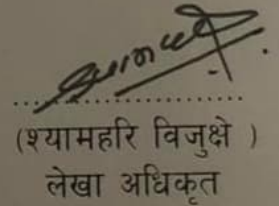 (श्यामहरि विजुक्षे )
लेखा अधिकृत